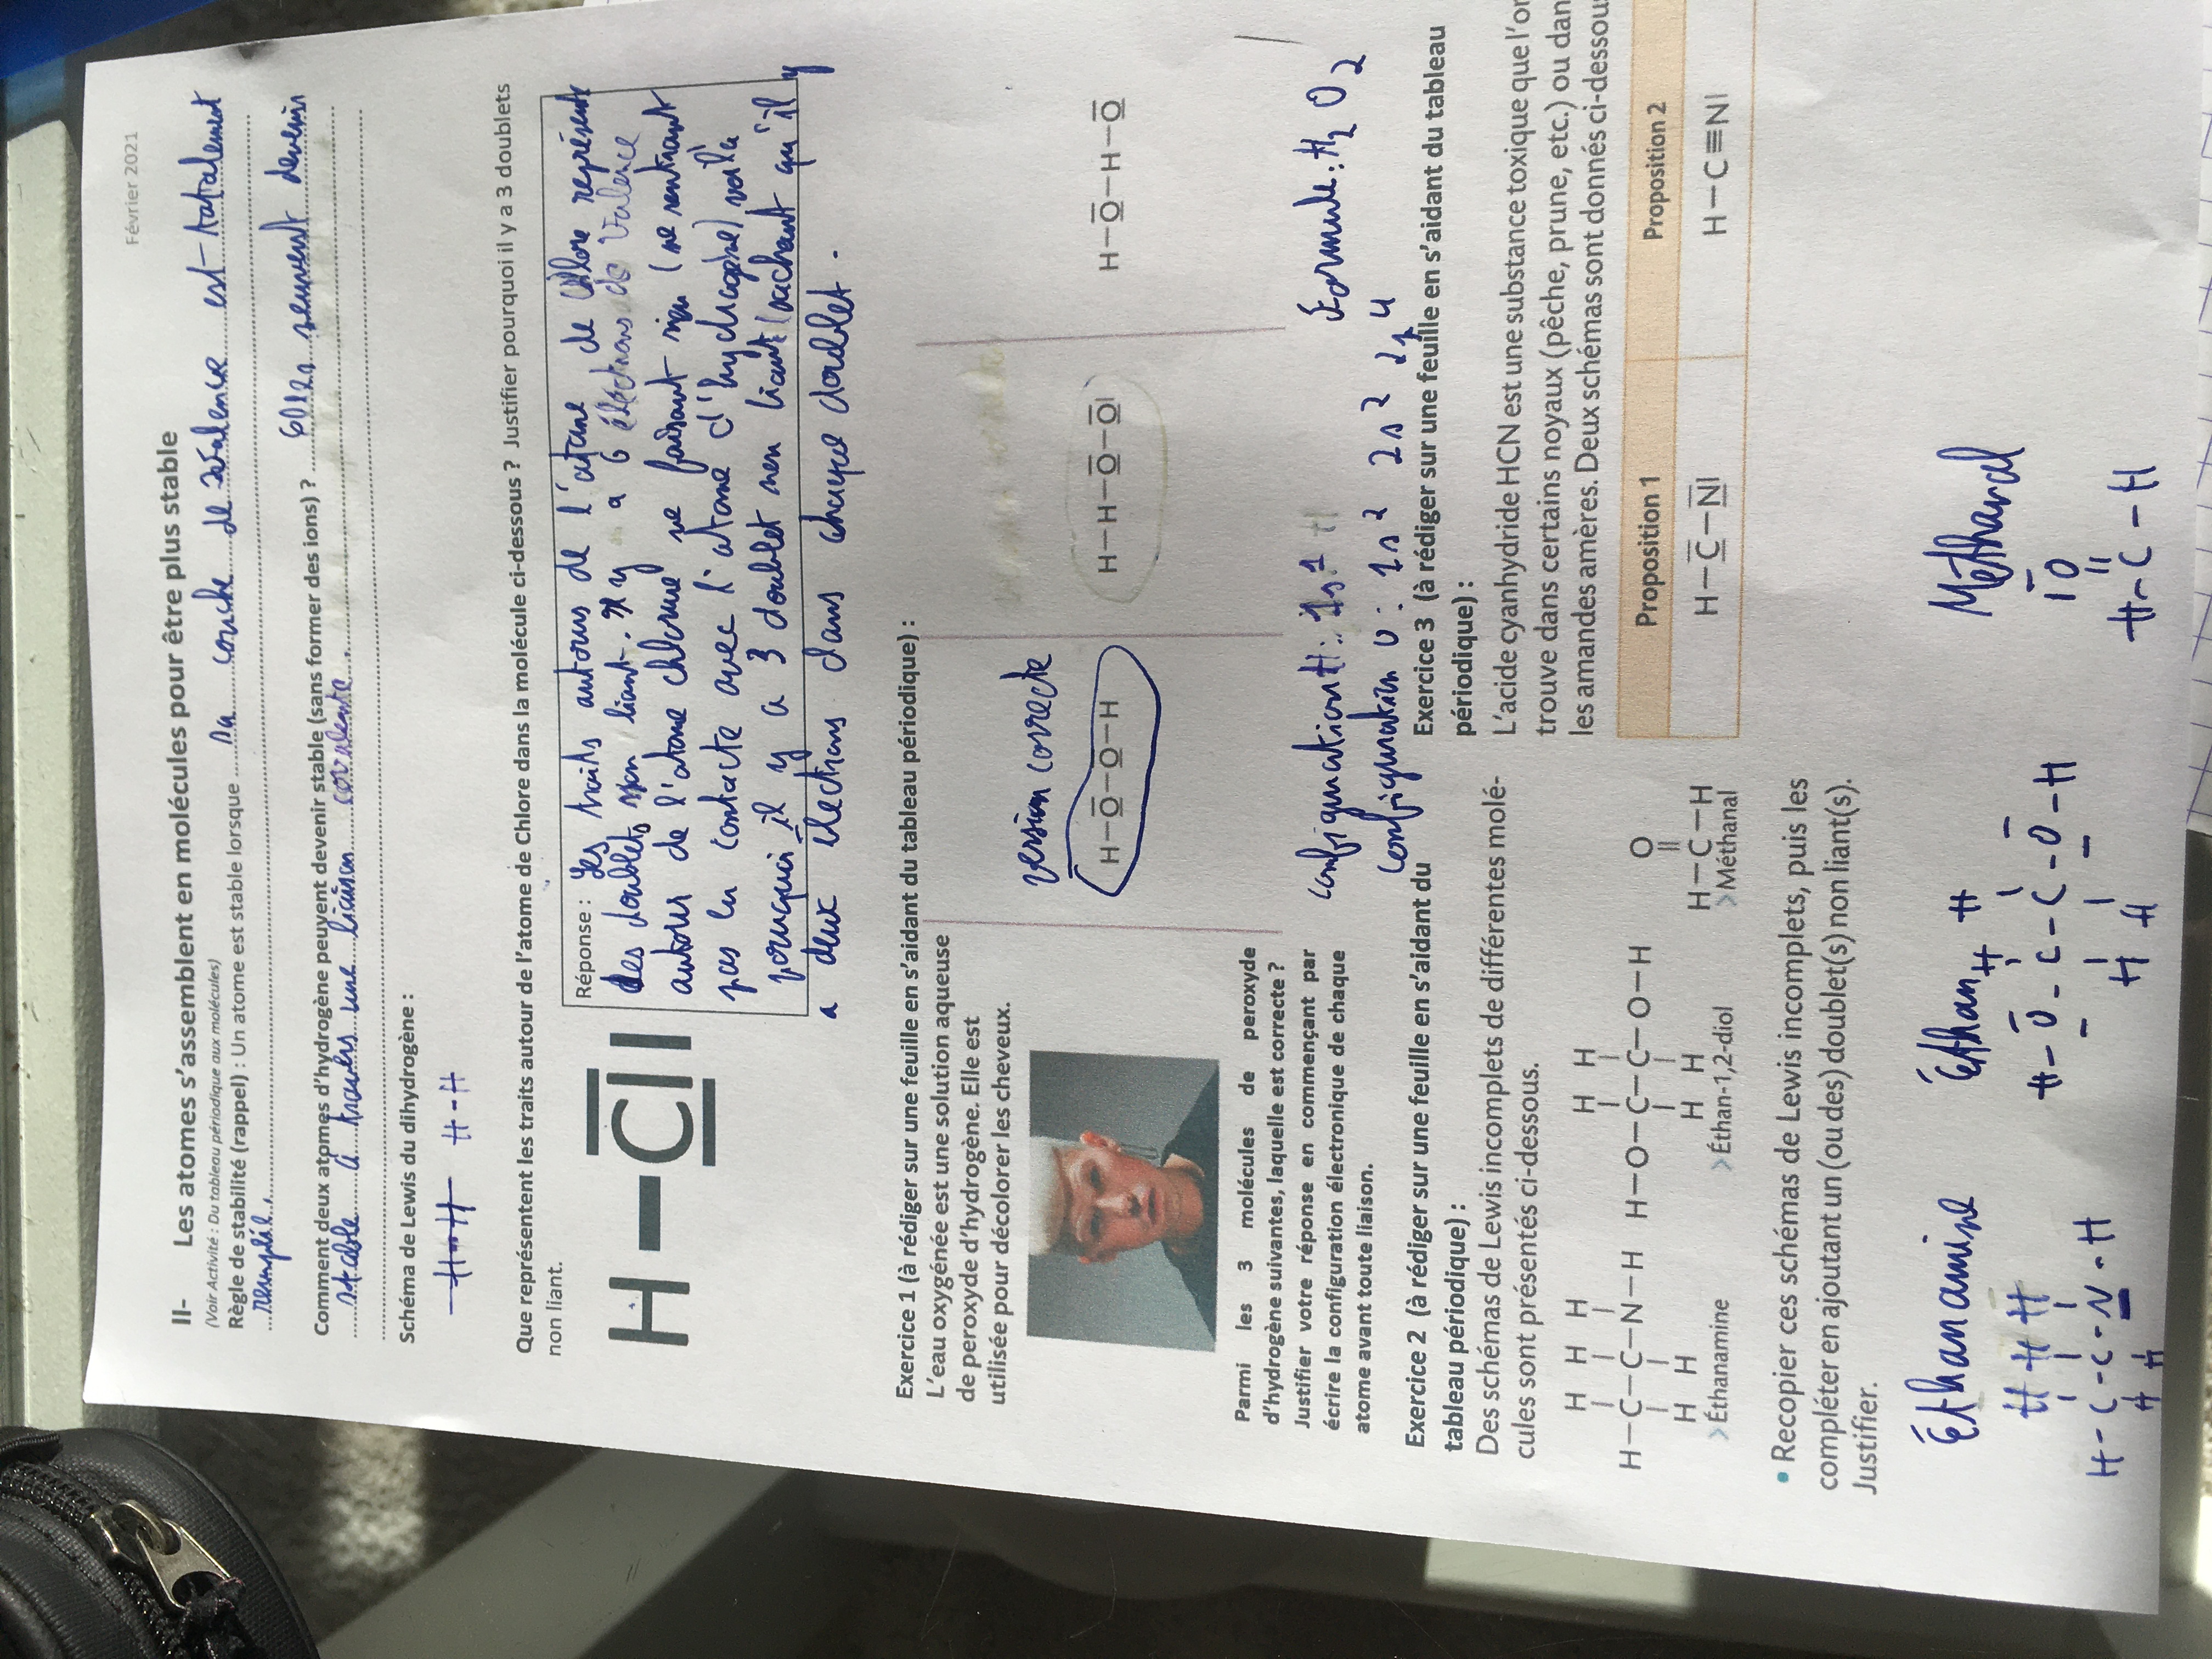 Février 2021
II- Les atomes s'assemblent en molécules pour être plus stable
(Voir Activité : Du tableau périodique aux molécules)
Règle de stabilité (rappel) : Un atome est stable lorsque sa couche de valence est totalement
remplie.
Comment deux atomes d'hydrogène peuvent devenir stable (sans former des ions) ? peuvent devenir
stable à travers une liaison covalente.
Schéma de Lewis du dihydrogène :
H-H H-H
Que représentent les traits autour de l'atome de Chlore dans la molécule ci-dessous ? Justifier pourquoi il y a 3 doublets
non liant.
H–Cl|
Réponse : Les traits autour de l'atome de Chlore représente
des doublets non liant. Il y a 6 électrons de valence
autour de l'atome chlorure ne faisant rien (ne rentrant
pas en contacte avec l'atome d'hydrogène) voilà
pourquoi il y a 3 doublet non liant (sachant qu'il y
a deux électrons dans chaque doublet.
Exercice 1 (à rédiger sur une feuille en s'aidant du tableau périodique) :
L'eau oxygénée est une solution aqueuse
de peroxyde d'hydrogène. Elle est
utilisée pour décolorer les cheveux.
version correcte
H–O–O–H H–H–O–O| H–O–H–O
Parmi les 3 molécules de peroxyde
d'hydrogène suivantes, laquelle est correcte ?
Justifier votre réponse en commençant par
écrire la configuration électronique de chaque
atome avant toute liaison.
configuration H : 1s¹
Formule : H₂ O₂
configuration O : 1s² 2s² 2p⁴
Exercice 2 (à rédiger sur une feuille en s'aidant du
tableau périodique) :
Des schémas de Lewis incomplets de différentes molé-
cules sont présentés ci-dessous.
H H H
H–C–C–N–H
H H
>Éthanamine
H H
H–O–C–C–O–H
H H
>Éthan-1,2-diol
O
||
H–C–H
>Méthanal
• Recopier ces schémas de Lewis incomplets, puis les
compléter en ajoutant un (ou des) doublet(s) non liant(s).
Justifier.
Exercice 3 (à rédiger sur une feuille en s'aidant du tableau
périodique) :
L'acide cyanhydride HCN est une substance toxique que l'on
trouve dans certains noyaux (pêche, prune, etc.) ou dan
les amandes amères. Deux schémas sont donnés ci-dessous
Proposition 1 Proposition 2
H–C–N| H–C≡N|
Éthanamine
H H H
H-C-C-N-H
H H
Éthan
H H
H-O-C-C-O-H
H H
Méthanal
|O
||
H-C-H